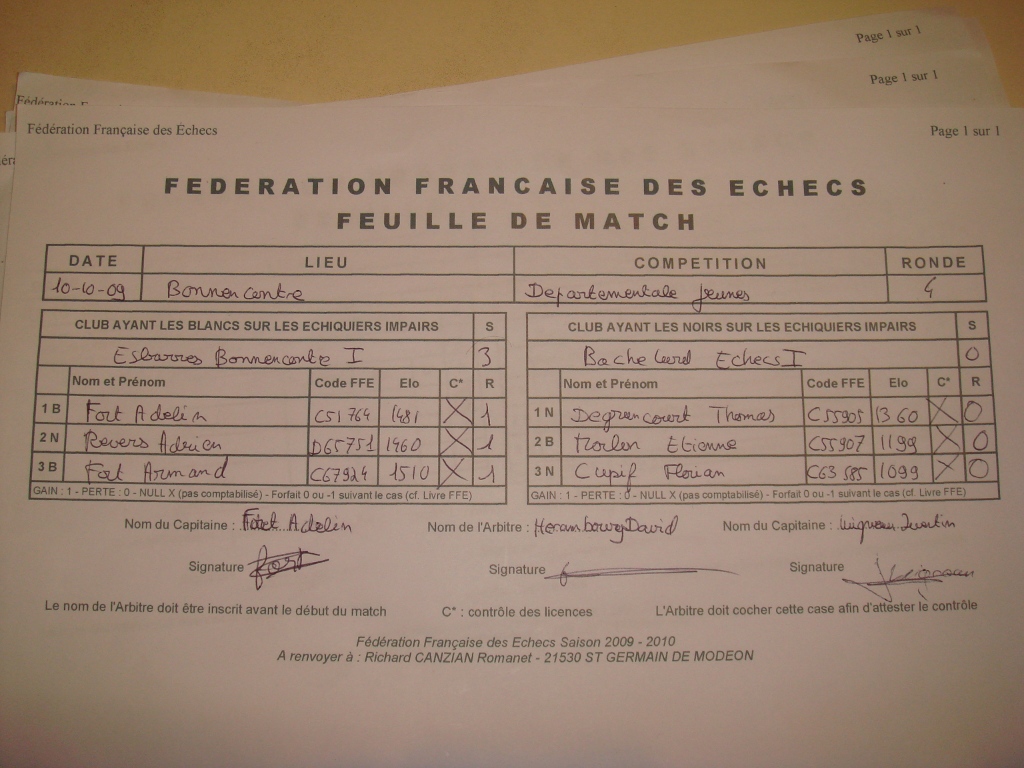 Page 1 sur 1
Page 1 sur 1
Fédération Française des Échecs Page 1 sur 1
FEDERATION FRANCAISE DES ECHECS
FEUILLE DE MATCH
DATE LIEU COMPETITION RONDE
10-10-09 Bonnencontre Departementale Jeunes 4
CLUB AYANT LES BLANCS SUR LES ECHIQUIERS IMPAIRS S CLUB AYANT LES NOIRS SUR LES ECHIQUIERS IMPAIRS S
Esbarres Bonnencontre I 3 Echecs I 0
Nom et Prénom Code FFE Elo C* R Nom et Prénom Code FFE Elo C* R
1 B Fort Adelin C51764 1481 X 1 1 N Degrancourt Thomas C55905 1360 X 0
2 N Revers Adrien D65751 1460 X 1 2 B Etienne C55907 1199 X 0
3 B Fort Armand C67924 1510 X 1 3 N Cupif Florian C63585 1099 X 0
GAIN : 1 - PERTE : 0 - NULL X (pas comptabilisé) - Forfait 0 ou -1 suivant le cas (cf. Livre FFE) GAIN : 1 - PERTE : 0 - NULL X (pas comptabilisé) - Forfait 0 ou -1 suivant le cas (cf. Livre FFE)
Nom du Capitaine : Fort Adelin Nom de l'Arbitre : Herambourg David Nom du Capitaine :
Signature Fort Signature Signature
Le nom de l'Arbitre doit être inscrit avant le début du match C* : contrôle des licences L'Arbitre doit cocher cette case afin d'attester le contrôle
Fédération Française des Echecs Saison 2009 - 2010
A renvoyer à : Richard CANZIAN Romanet - 21530 ST GERMAIN DE MODEON